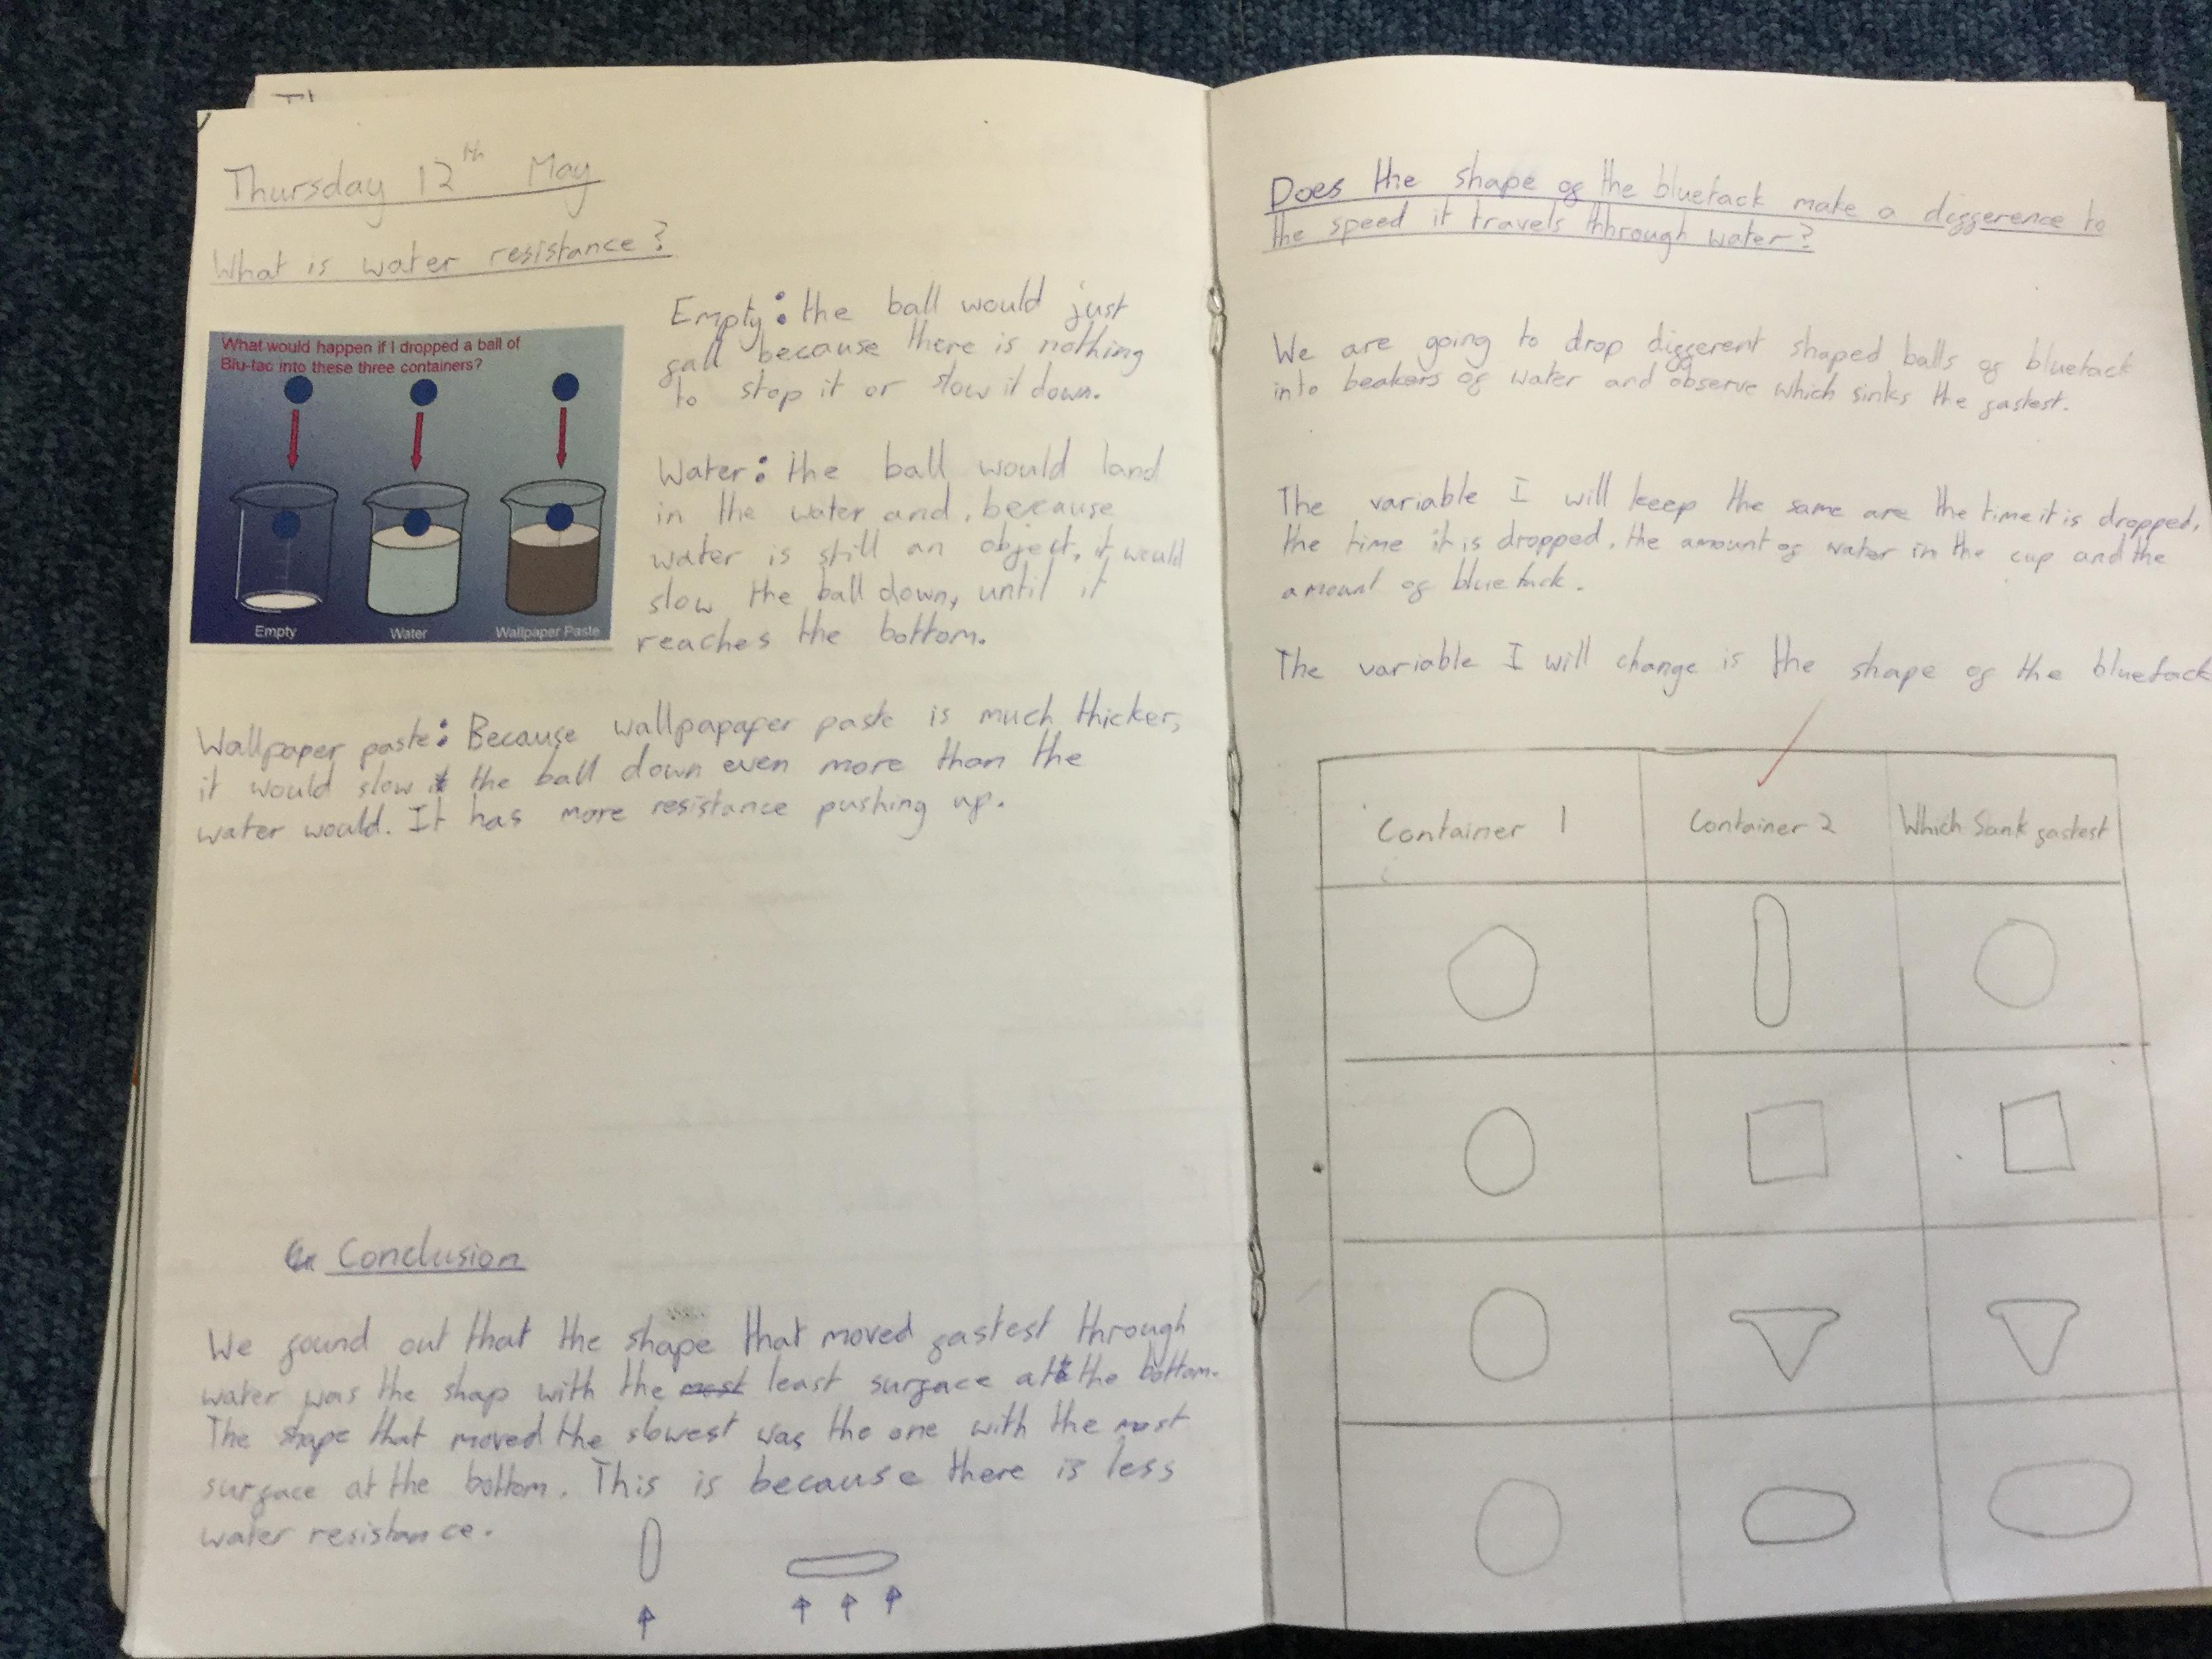 Thursday 12th May
What is water resistance?
What would happen if I dropped a ball of
Blu-tac into these three containers?
Empty
Water
Wallpaper Paste
Empty: the ball would just
fall because there is nothing
to stop it or slow it down.
Water: the ball would land
in the water and, because
water is still an object, it would
slow the ball down, until it
reaches the bottom.
Wallpaper paste: Because wallpapaper paste is much thicker,
it would slow it the ball down even more than the
water would. It has more resistance pushing up.
Conclusion
We found out that the shape that moved fastest through
water was the shap with the most least surface at the bottom.
The shape that moved the slowest was the one with the most
surface at the bottom. This is because there is less
water resistance.
Does the shape of the bluetack make a difference to
the speed it travels thhrough water?
We are going to drop different shaped balls of bluetack
into beakers of water and observe which sinks the fastest.
The variable I will keep the same are the time it is dropped,
the time it is dropped, the amount of water in the cup and the
amount of bluetack.
The variable I will change is the shape of the bluetack
Container 1
Container 2
Which Sank fastest